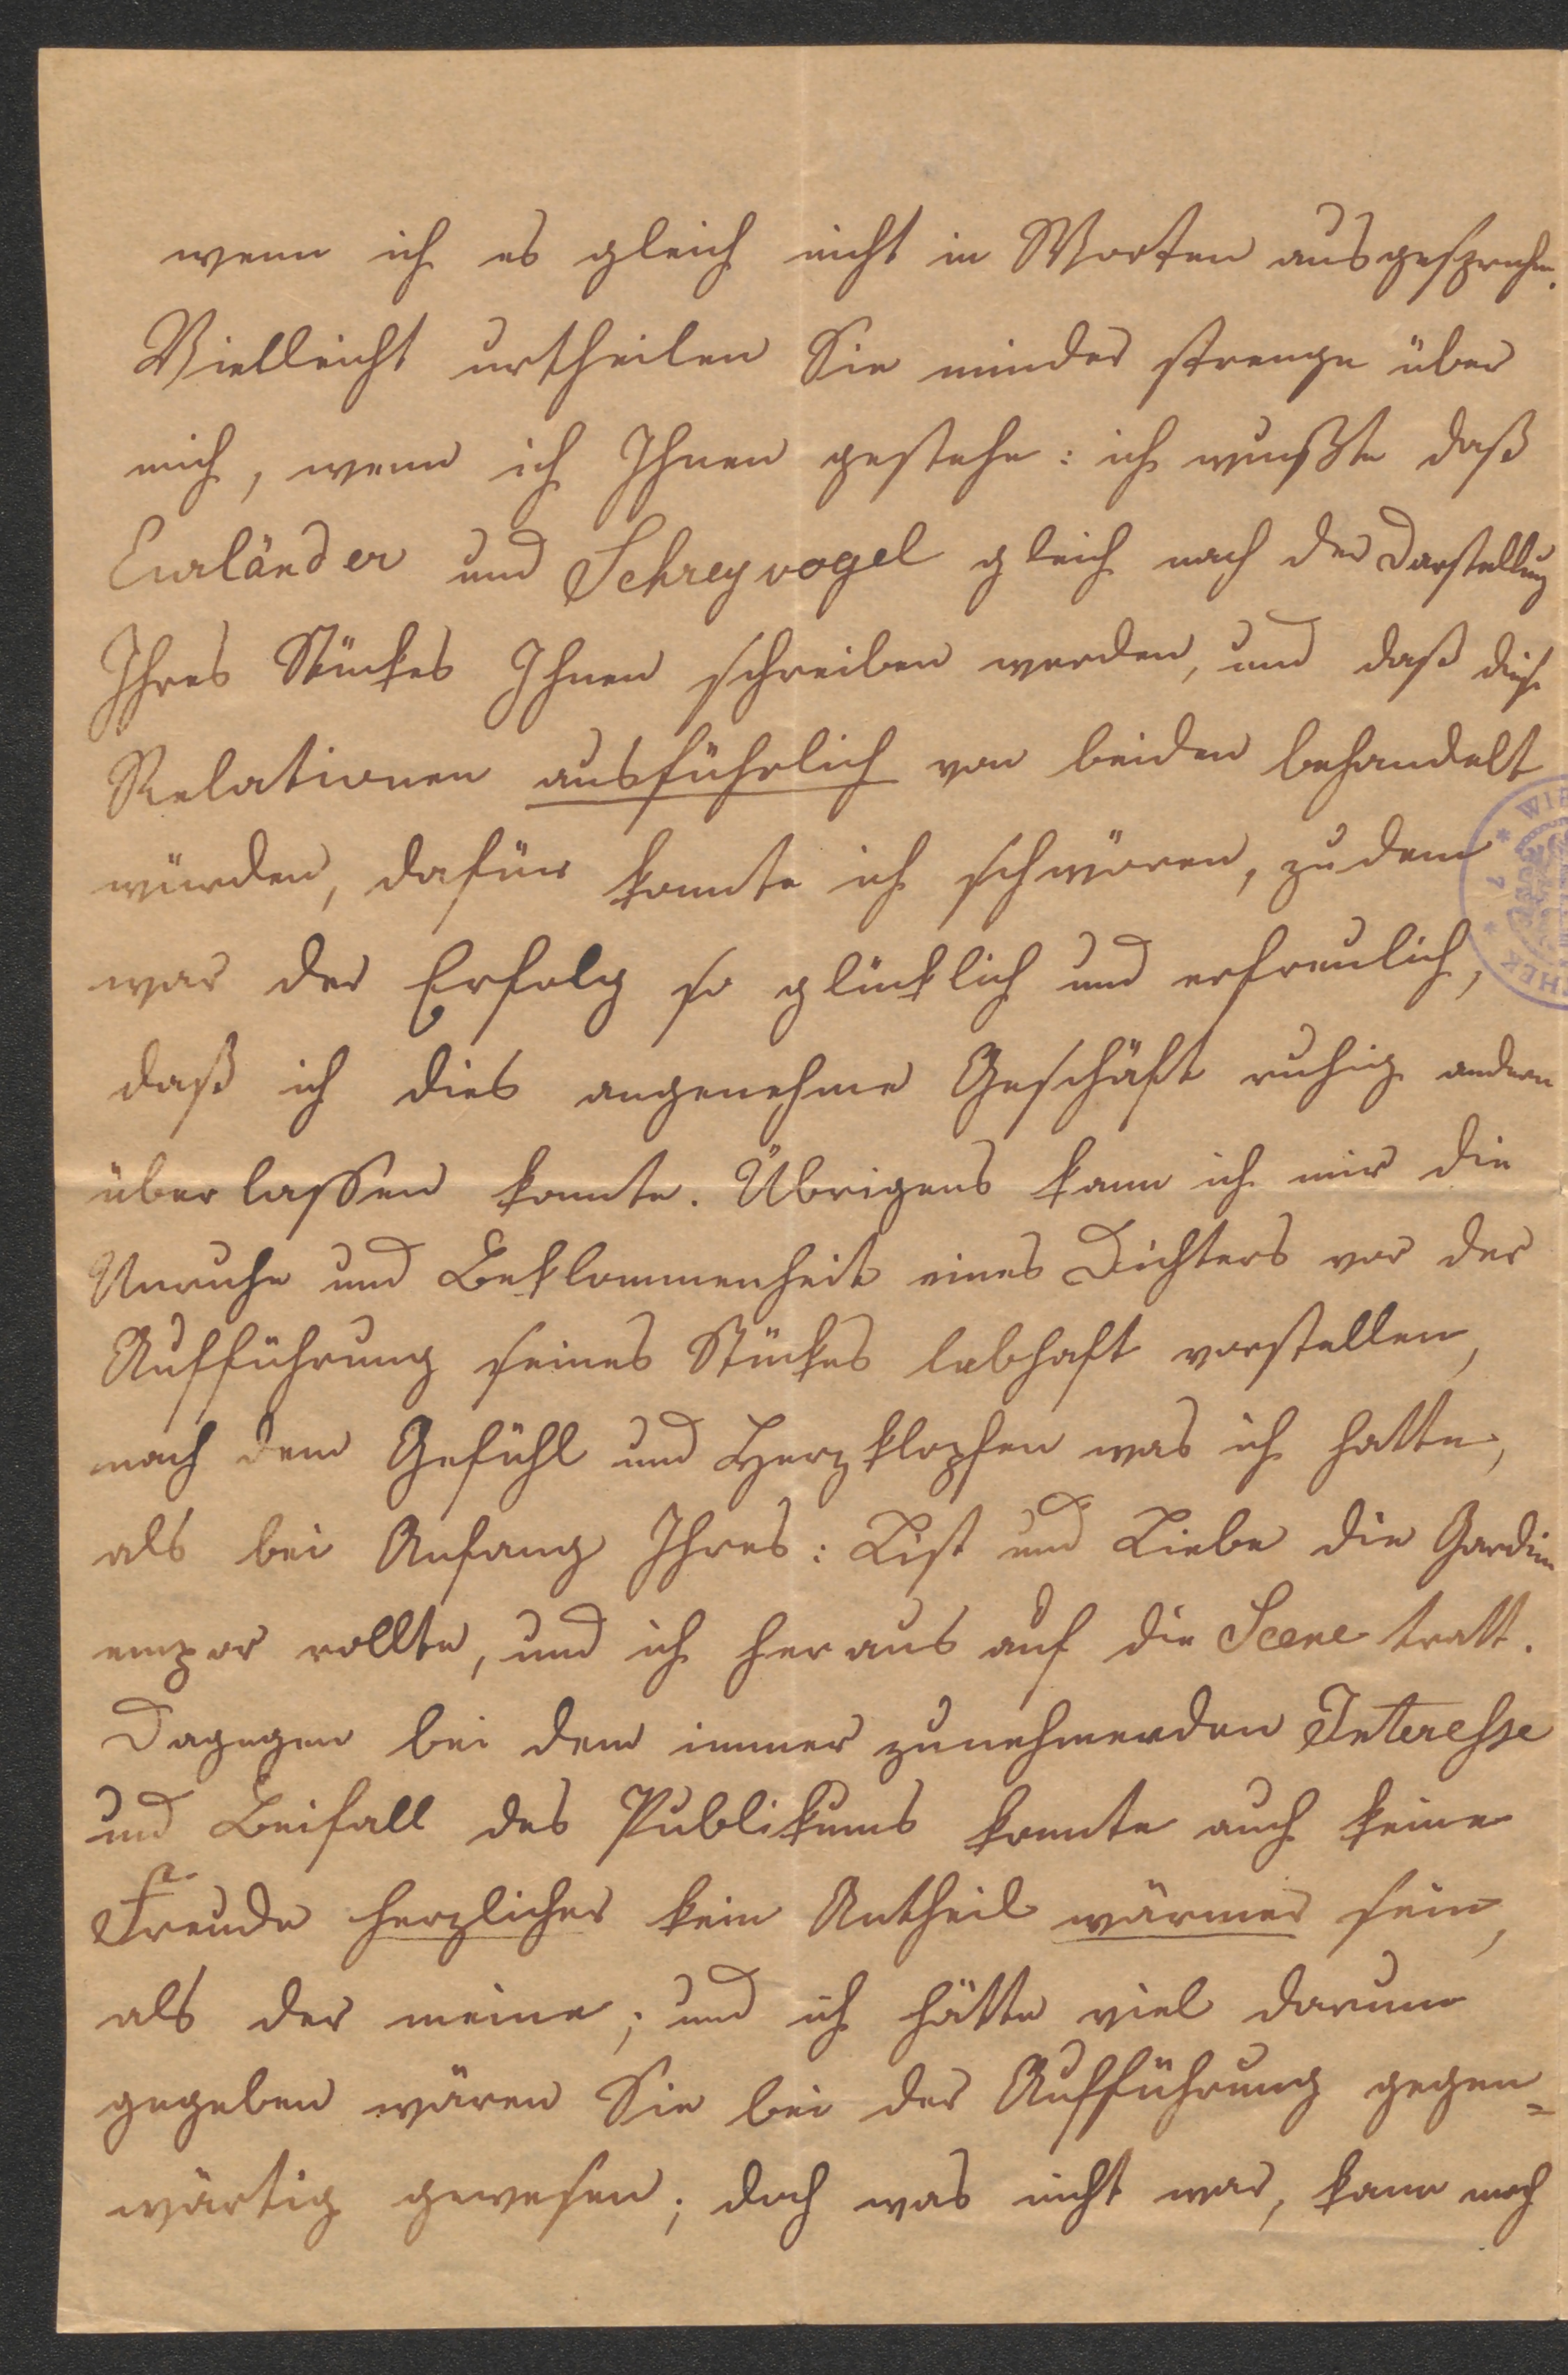 wenn ich es gleich nicht in Worten ausgesprochen.
Vielleicht urtheilen Sie minder strenge über
mich, wenn ich Ihnen gestehe: ich wußte daß
Curländer und Schreyvogel gleich nach der Darstellung
Ihres Stückes Ihnen schreiben werden, und daß diese
Relationen ausführlich von beiden behandelt
würden, dafür konnte ich schwören, zudem
war der Erfolg so glücklich und erfreulich,
daß ich dies angenehme Geschäft ruhig andern
überlassen konnte. Übrigens kann ich mir die
Unruhe und Beklommenheit eines Dichters vor der
Aufführung seines Stückes lebhaft vorstellen,
nach dem Gefühl und Herzklopfen was ich hatte,
als bei Anfang Ihres: List und Liebe die Gardine
empor rollte, und ich heraus auf die Scene tratt.
Dagegen bei dem immer zunehmenden Interesse
und Beifall des Publikums konnte auch keine
Freude herzlicher kein Antheil wärmer sein,
als der meine; und ich hätte viel darum
gegeben wären Sie bei der Aufführung gegen=
wärtig gewesen; doch was nicht war, kann noch